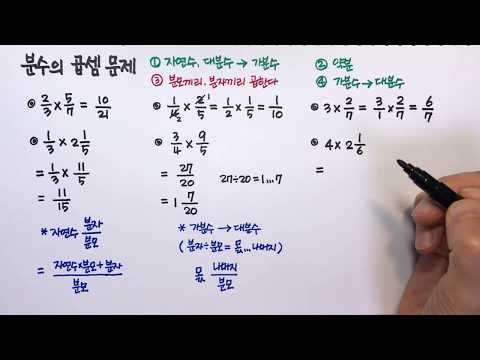 분수의 곱셈 문제
① 자연수, 대분수 → 가분수
② 약분
③ 분모끼리, 분자끼리 곱한다
④ 가분수 → 대분수
2/3 × 5/7 = 10/21
1/3 × 2 1/5
= 1/3 × 11/5
= 11/15
* 자연수 분자/분모
= 자연수×분모+분자/분모
× 1/5 = 1/2 × 1/5 = 1/10
3/4 × 9/5
= 27/20
27÷20=1...7
= 1 7/20
* 가분수 → 대분수
(분자÷분모 = 몫...나머지)
몫 나머지/분모
3 × 2/7 = 3/1 × 2/7 = 6/7
4 × 2 1/6
=